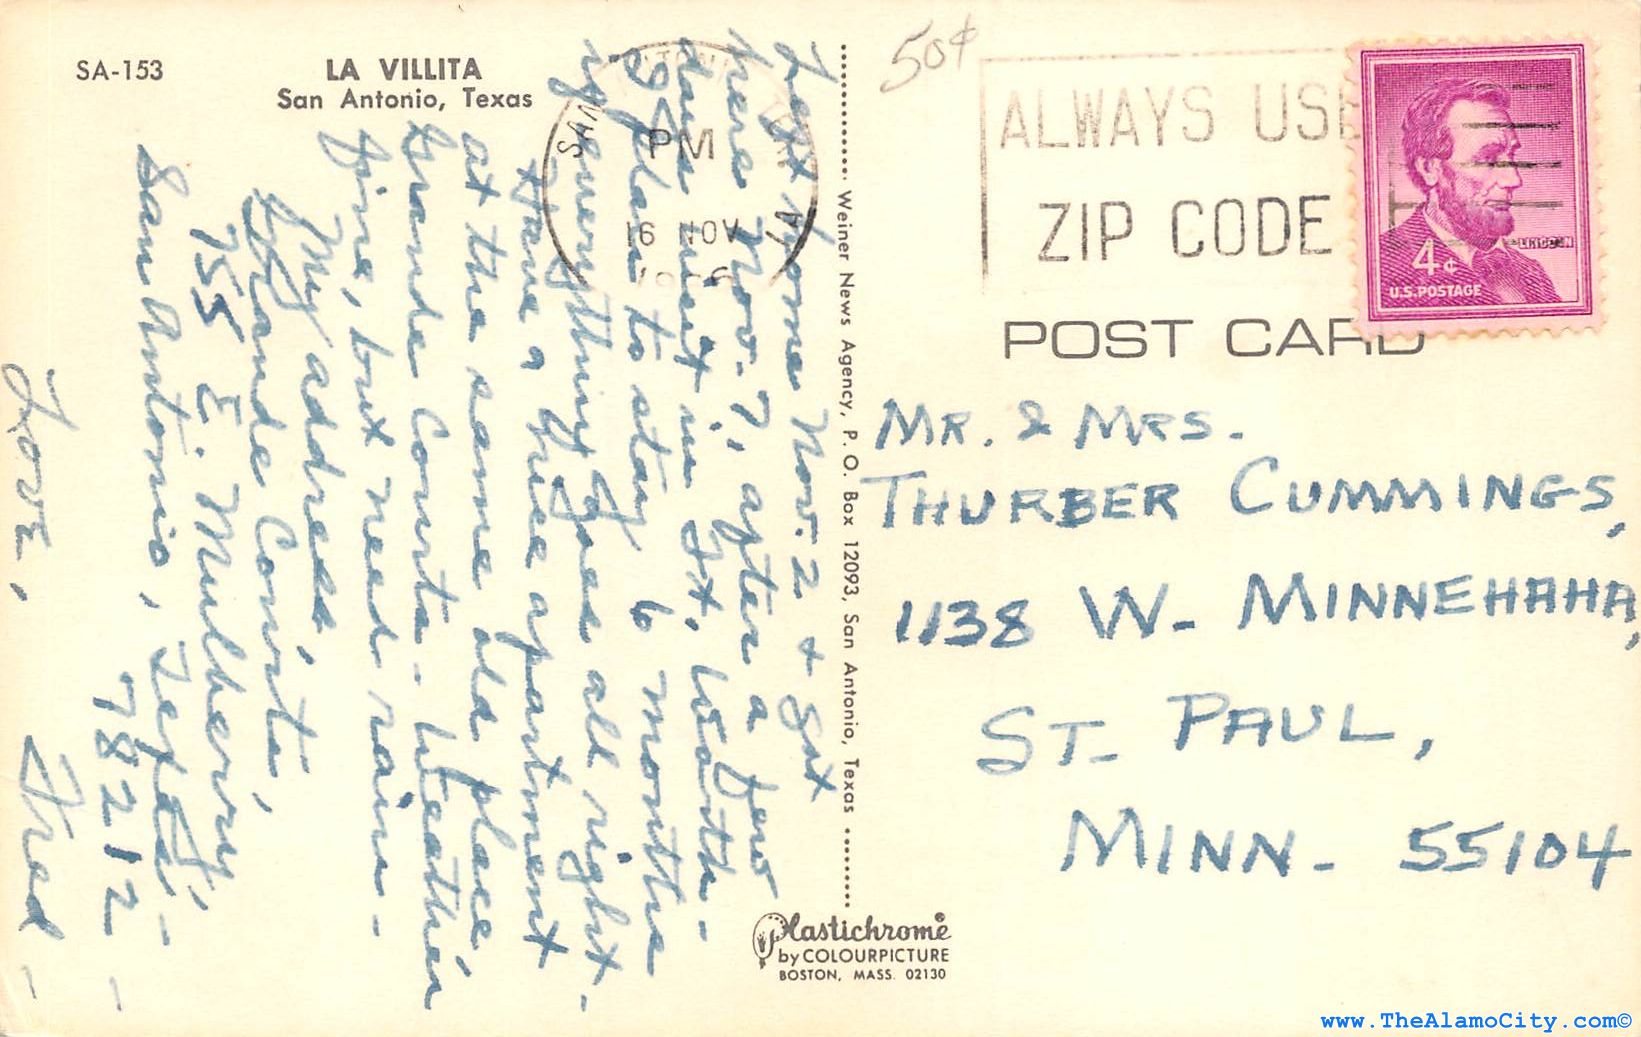 SA-153
LA VILLITA
San Antonio, Texas
50¢
SAN ANTONIO
PM
16 NOV
ALWAYS USE
ZIP CODE
LINCOLN
4¢
U.S. POSTAGE
POST CARD
Left home Nov. 2 & got
here Nov. 7, after a few
days visit in Ft. Worth -
I plan to stay 6 months
if everything goes all right -
Have a nice apartment
at the same old place
Grande Courts - Weather
fine, but need rain -
My address,
Grande Courts,
755 E. Mulberry,
San Antonio, Texas -
78212 -
Love,
Fred -
Weiner News Agency, P. O. Box 12093, San Antonio, Texas
MR. & MRS.
THURBER CUMMINGS,
1138 W. MINNEHAHA,
ST. PAUL,
MINN - 55104
Plastichrome®
by COLOURPICTURE
BOSTON, MASS. 02130
www.TheAlamoCity.com©